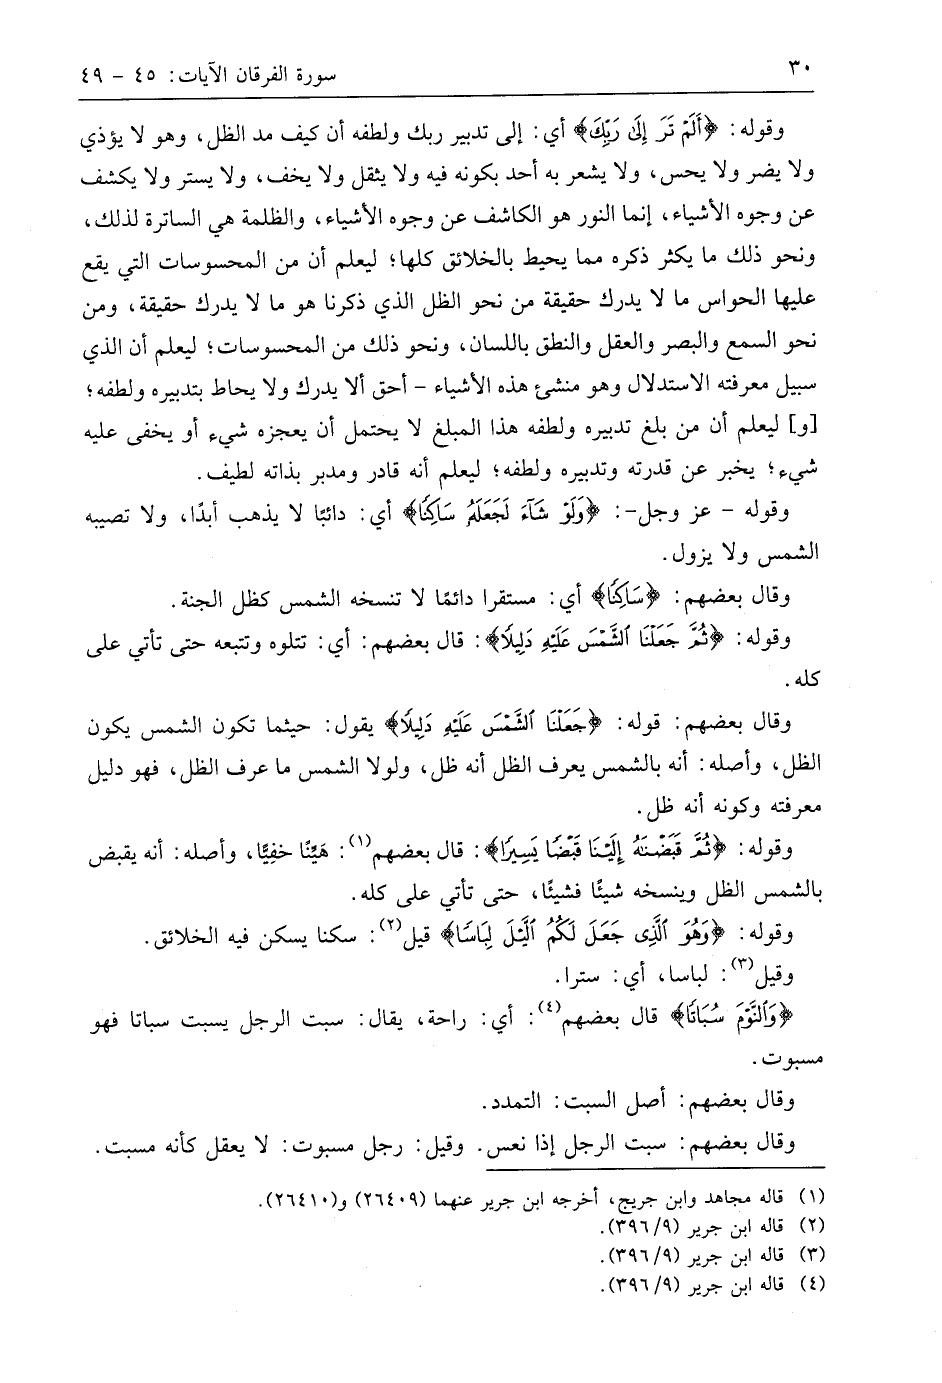 ٣٠
سورة الفرقان الآيات: ٤٥ - ٤٩
وقوله: ﴿أَلَمْ تَرَ إِلَىٰ رَبِّكَ﴾ أي: إلى تدبير ربك ولطفه أن كيف مد الظل، وهو لا يؤذي
ولا يضر ولا يحس، ولا يشعر به أحد بكونه فيه ولا يثقل ولا يخف، ولا يستر ولا يكشف
عن وجوه الأشياء، إنما النور هو الكاشف عن وجوه الأشياء، والظلمة هي الساترة لذلك،
ونحو ذلك ما يكثر ذكره مما يحيط بالخلائق كلها؛ ليعلم أن من المحسوسات التي يقع
عليها الحواس ما لا يدرك حقيقة من نحو الظل الذي ذكرنا هو ما لا يدرك حقيقة، ومن
نحو السمع والبصر والعقل والنطق باللسان، ونحو ذلك من المحسوسات؛ ليعلم أن الذي
سبيل معرفته الاستدلال وهو منشئ هذه الأشياء - أحق ألا يدرك ولا يحاط بتدبيره ولطفه؛
[و] ليعلم أن من بلغ تدبيره ولطفه هذا المبلغ لا يحتمل أن يعجزه شيء أو يخفى عليه
شيء؛ يخبر عن قدرته وتدبيره ولطفه؛ ليعلم أنه قادر ومدبر بذاته لطيف.
وقوله - عز وجل-: ﴿وَلَوْ شَآءَ لَجَعَلَهُۥ سَاكِنًا﴾ أي: دائبًا لا يذهب أبدًا، ولا تصيبه
الشمس ولا يزول.
وقال بعضهم: ﴿سَاكِنًا﴾ أي: مستقرا دائمًا لا تنسخه الشمس كظل الجنة.
وقوله: ﴿ثُمَّ جَعَلْنَا ٱلشَّمْسَ عَلَيْهِ دَلِيلًا﴾: قال بعضهم: أي: تتلوه وتتبعه حتى تأتي على
كله.
وقال بعضهم: قوله: ﴿جَعَلْنَا ٱلشَّمْسَ عَلَيْهِ دَلِيلًا﴾ يقول: حيثما تكون الشمس يكون
الظل، وأصله: أنه بالشمس يعرف الظل أنه ظل، ولولا الشمس ما عرف الظل، فهو دليل
معرفته وكونه أنه ظل.
وقوله: ﴿ثُمَّ قَبَضْنَٰهُ إِلَيْنَا قَبْضًا يَسِيرًا﴾: قال بعضهم(١): هَيِّنًا خفِيًّا، وأصله: أنه يقبض
بالشمس الظل وينسخه شيئًا فشيئًا، حتى تأتي على كله.
وقوله: ﴿وَهُوَ ٱلَّذِى جَعَلَ لَكُمُ ٱلَّيْلَ لِبَاسًا﴾ قيل(٢): سكنا يسكن فيه الخلائق.
وقيل(٣): لباسا، أي: سترا.
﴿وَٱلنَّوْمَ سُبَاتًا﴾ قال بعضهم(٤): أي: راحة، يقال: سبت الرجل يسبت سباتا فهو
مسبوت.
وقال بعضهم: أصل السبت: التمدد.
وقال بعضهم: سبت الرجل إذا نعس. وقيل: رجل مسبوت: لا يعقل كأنه مسبت.
(١) قاله مجاهد وابن جريج، أخرجه ابن جرير عنهما (٢٦٤٠٩) و(٢٦٤١٠).
(٢) قاله ابن جرير (٣٩٦/٩).
(٣) قاله ابن جرير (٣٩٦/٩).
(٤) قاله ابن جرير (٣٩٦/٩).